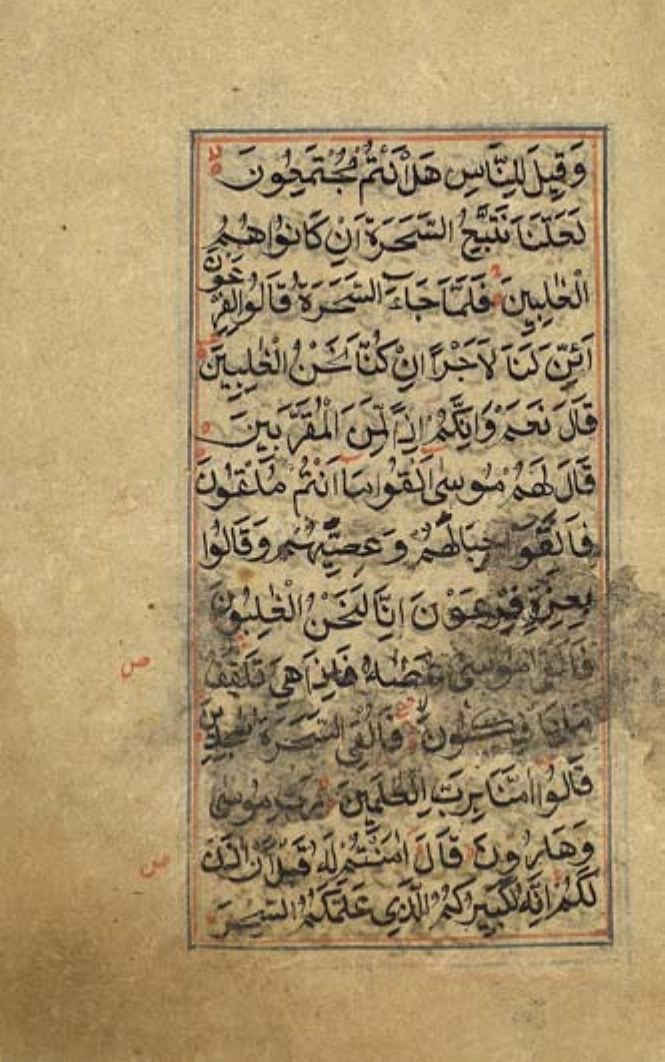 وَقِيلَ لِلنَّاسِ هَلْ اَنْتُمْ مُجْتَمِعُونَ
لَعَلَّنَا نَتَّبِعُ السَّحَرَةَ اِنْ كَانُوا هُمُ
الْغٰلِبِينَ فَلَمَّا جَاءَ السَّحَرَةُ قَالُوا لِفِرْعَوْنَ
اَئِنَّ لَنَا لَاَجْرًا اِنْ كُنَّا نَحْنُ الْغٰلِبِينَ
قَالَ نَعَمْ وَاِنَّكُمْ اِذًا لَمِنَ الْمُقَرَّبِينَ
قَالَ لَهُمْ مُوسٰى اَلْقُوا مَا اَنْتُمْ مُلْقُونَ
فَاَلْقَوْا حِبَالَهُمْ وَعِصِيَّهُمْ وَقَالُوا
بِعِزَّةِ فِرْعَوْنَ اِنَّا لَنَحْنُ الْغٰلِبُونَ
فَاَلْقٰى مُوسٰى عَصَاهُ فَاِذَا هِيَ تَلْقَفُ
مَا يَاْفِكُونَ فَاُلْقِيَ السَّحَرَةُ سٰجِدِينَ
قَالُوا اٰمَنَّا بِرَبِّ الْعٰلَمِينَ رَبِّ مُوسٰى
وَهٰرُونَ قَالَ اٰمَنْتُمْ لَهُ قَبْلَ اَنْ اٰذَنَ
لَكُمْ اِنَّهُ لَكَبِيرُكُمُ الَّذِي عَلَّمَكُمُ السِّحْرَ
ص
ص